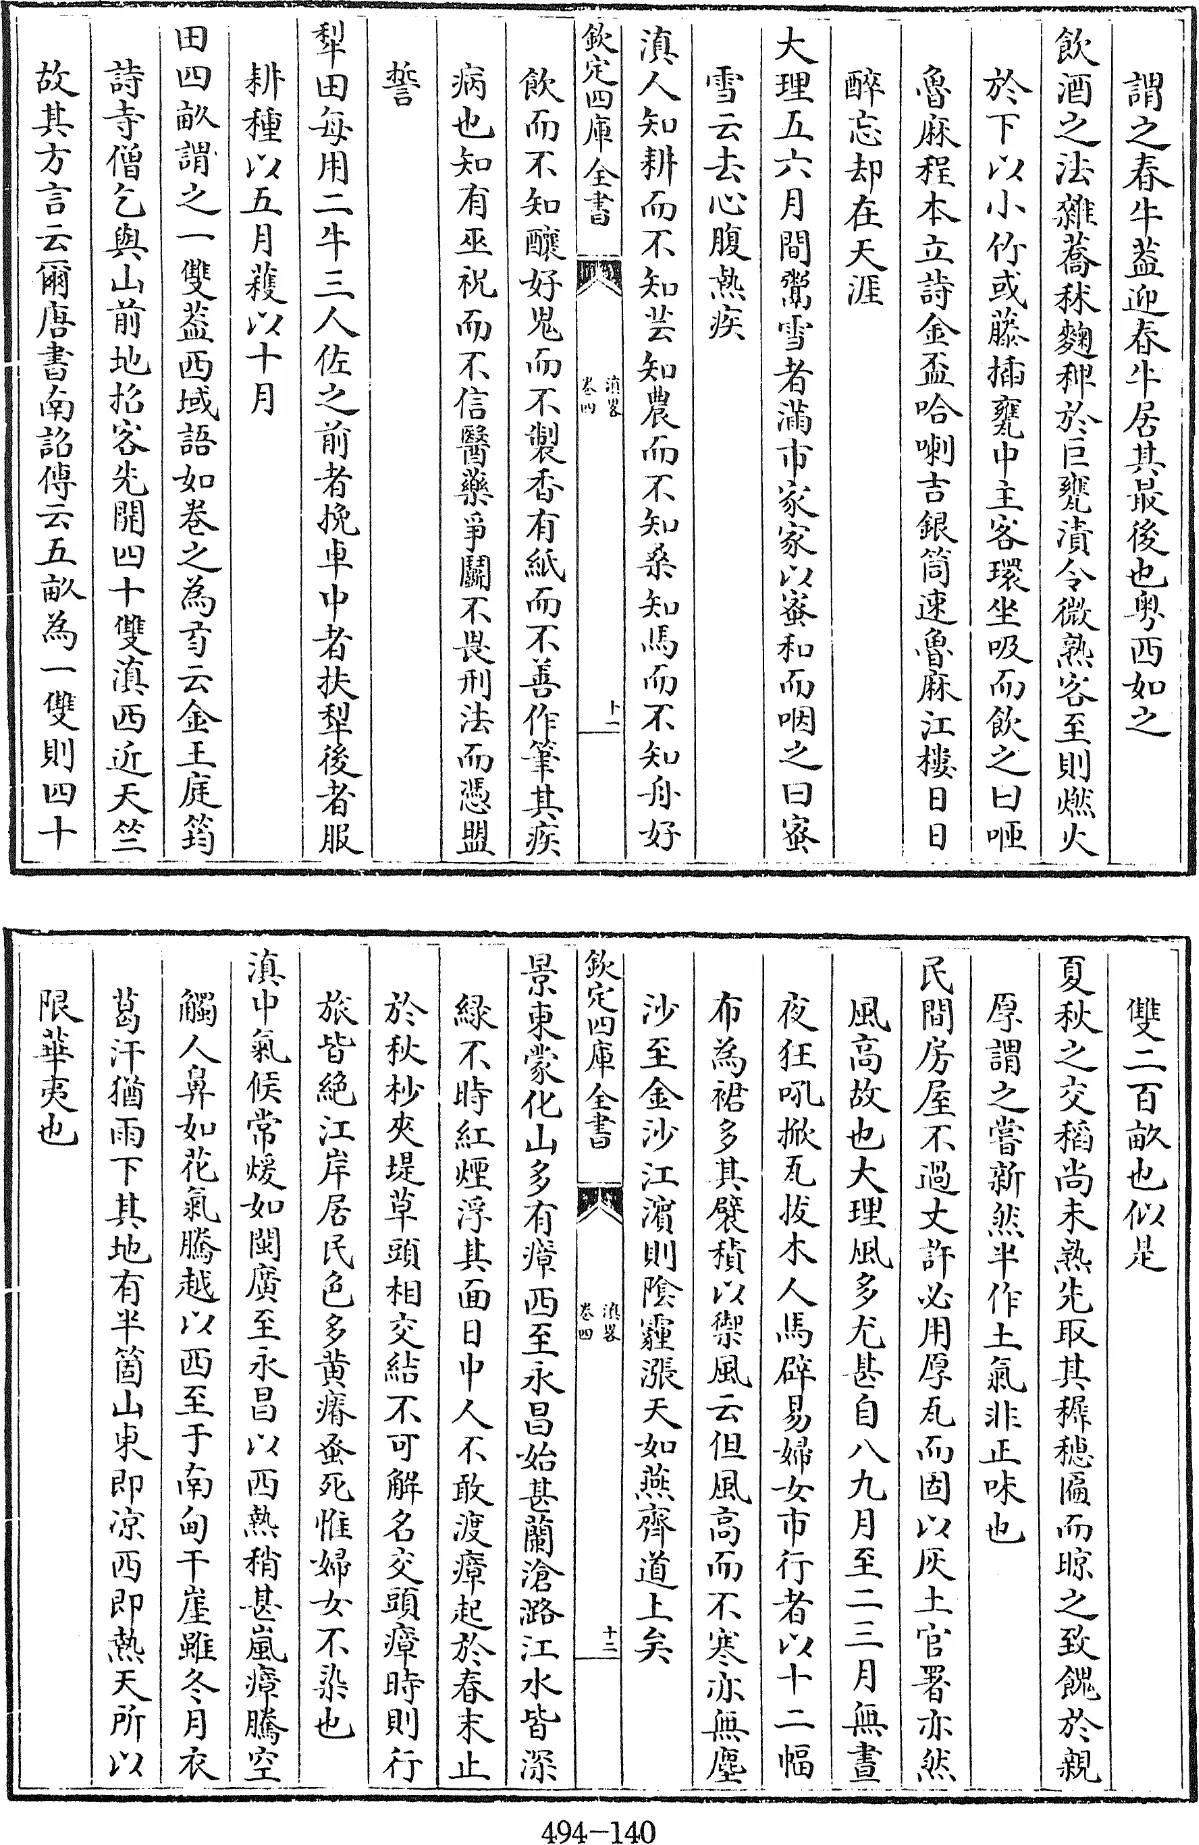 謂之春牛蓋迎春牛居其最後也粤西如之
飲酒之法雜蕎秫麴稗於巨甕漬令微熟客至則燃火
於下以小竹或藤插甕中主客環坐吸而飲之曰咂
魯麻程本立詩金盃哈喇吉銀筒速魯麻江樓日日
醉忘却在天涯
大理五六月間鬻雪者滿市家家以蜜和而咽之曰蜜
雪云去心腹熱疾
滇人知耕而不知芸知農而不知桑知馬而不知舟好
欽定四庫全書
滇畧
卷四
十一
飲而不知釀好鬼而不製香有紙而不善作筆其疾
病也知有巫祝而不信醫藥爭鬭不畏刑法而憑盟
誓
犁田每用二牛三人佐之前者挽車中者扶犁後者服
耕種以五月穫以十月
田四畝謂之一雙蓋西域語如卷之為弓云金王庭筠
詩寺僧乞與山前地招客先開四十雙滇西近天竺
故其方言云爾唐書南詔傳云五畝為一雙則四十
雙二百畝也似是
夏秋之交稻尚未熟先取其稺穂匾而晾之致餽於親
厚謂之嘗新然半作土氣非正味也
民間房屋不過丈許必用厚瓦而固以灰土官署亦然
風高故也大理風多尤甚自八九月至二三月無晝
夜狂吼掀瓦拔木人馬辟易婦女市行者以十二幅
布為裙多其襞積以禦風云但風高而不寒亦無塵
沙至金沙江濵則陰霾漲天如燕齊道上矣
欽定四庫全書
滇畧
卷四
十二
景東蒙化山多有瘴西至永昌始甚蘭滄潞江水皆深
緑不時紅煙浮其面日中人不敢渡瘴起於春末止
於秋杪夾堤草頭相交結不可解名交頭瘴時則行
旅皆絶江岸居民色多黄瘠蚤死惟婦女不染也
滇中氣候常煖如閩廣至永昌以西熱稍甚嵐瘴騰空
觸人鼻如花氣騰越以西至于南甸干崖雖冬月衣
葛汗猶雨下其地有半箇山東即凉西即熱天所以
限華夷也
494-140